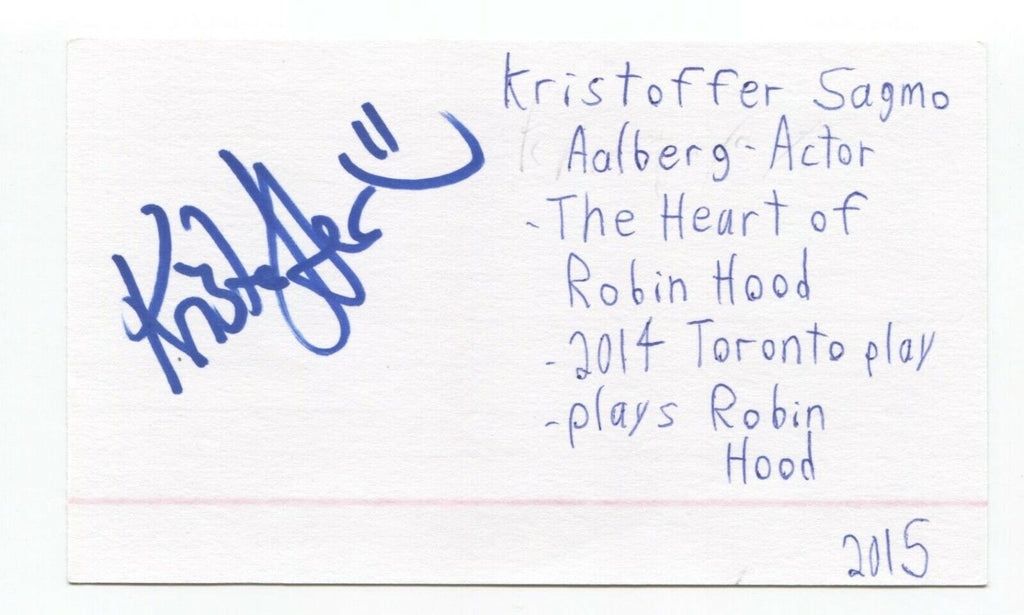 Kristoffer
Kristoffer Sagmo
Aalberg - Actor
- The Heart of
Robin Hood
- 2014 Toronto play
- plays Robin
Hood
2015